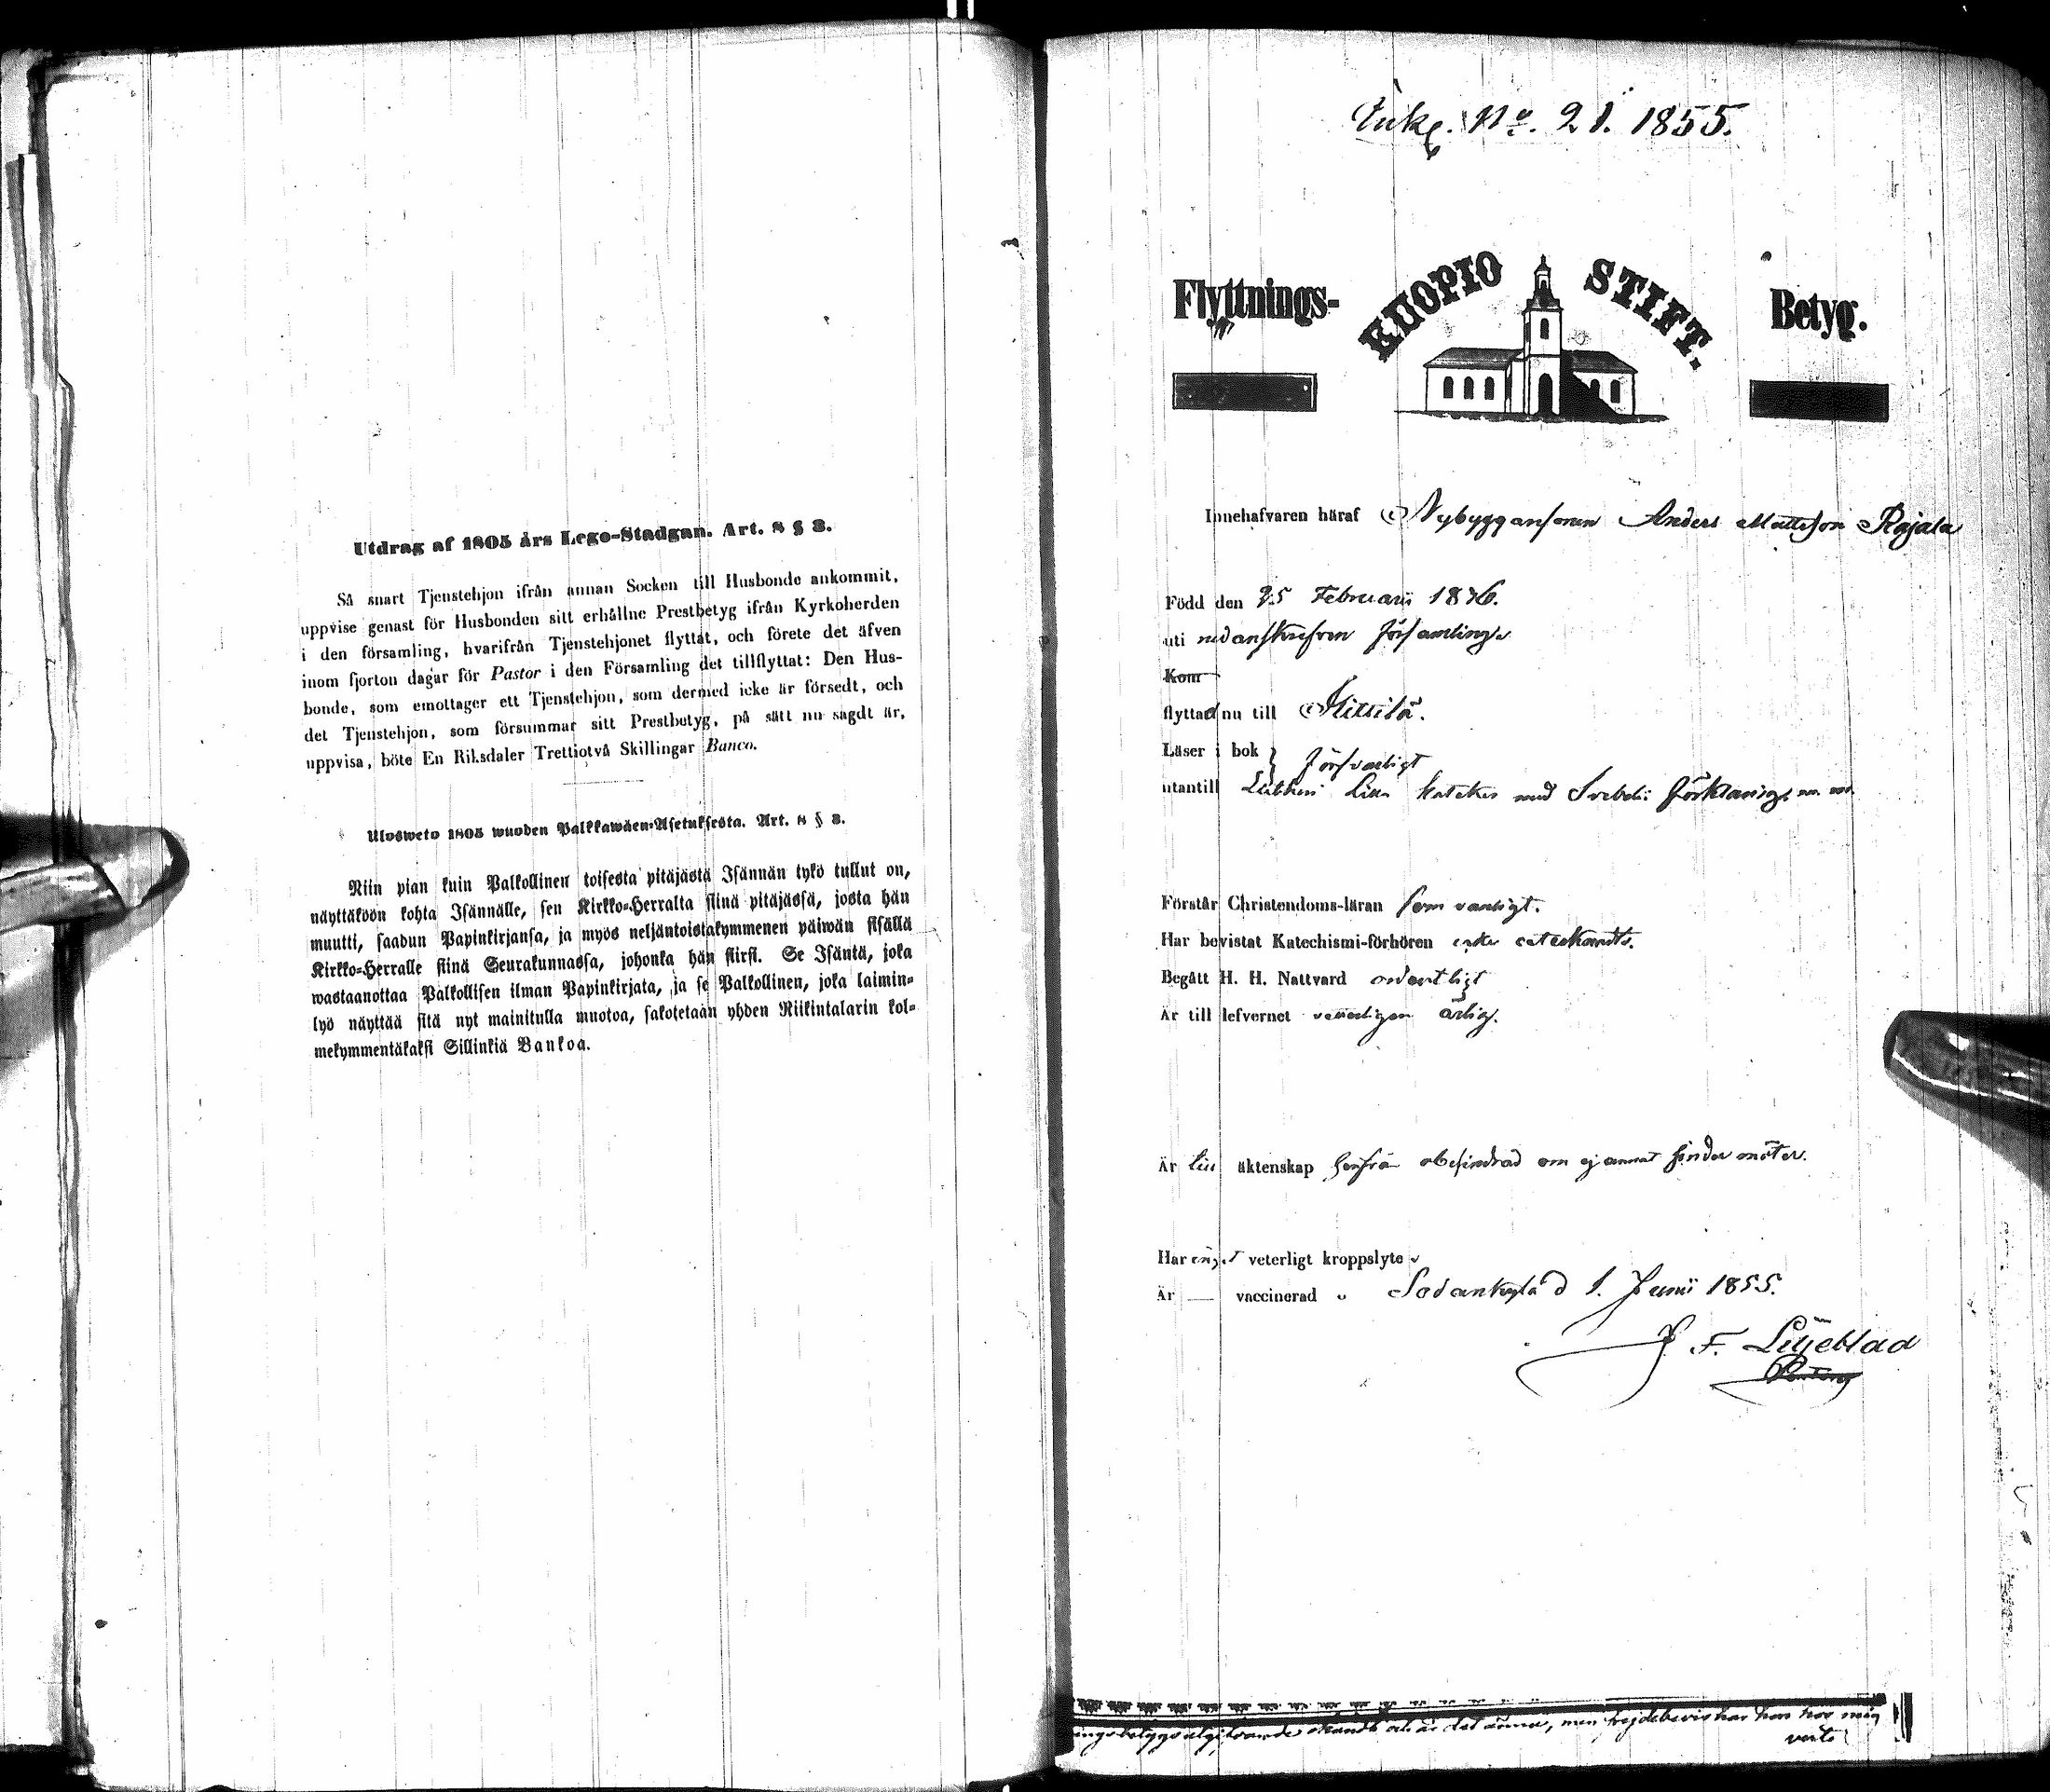 Utdrag af 1805 års Lego-Stadgan. Art. 8 § 3.
Så snart Tjenstehjon ifrån annan Socken till Husbonde ankommit,
uppvise genast för Husbonden sitt erhållne Prestbetyg ifrån Kyrkoherden
i den församling, hvarifrån Tjenstehjonet flyttat, och förete det äfven
inom fjorton dagar för Pastor i den Församling det tillflyttat: Den Hus-
bonde, som emottager ett Tjenstehjon, som dermed icke är försedt, och
det Tjenstehjon, som försummar sitt Prestbetyg, på sätt nu sagdt är,
uppvisa, böte En Riksdaler Trettiotvå Skillingar Banco.
Ulosweto 1805 wuoden Palkkawäen-Asetuksesta. Art. 8 § 3.
Niin pian kuin Palkollinen toisesta pitäjästä Isännän tykö tullut on,
näyttäköön kohta Isännälle, sen Kirkko-Herralta siinä pitäjässä, josta hän
muutti, saadun Papinkirjansa, ja myös neljäntoistakymmenen päiwän sisällä
Kirkko-Herralle siinä Seurakunnassa, johonka hän siirsi. Se Isäntä, joka
wastaanottaa Palkollisen ilman Papinkirjata, ja se Palkollinen, joka laimin-
lyö näyttää sitä nyt mainitulla muotoa, sakotetaan yhden Riikintalarin kol-
mekymmentäkaksi Sillinkiä Bankoa.
Inkg. No. 21. 1855.
Flyttnings- KUOPIO STIFT. Betyg.
Innehafvaren häraf Nybyggaresonen Anders Mattsson Rajala
Född den 25 Februarii 1836.
uti nedanskrefven församling
Kom
flyttad nu till Kittilä.
Läser i bok } försvarligt
utantill Lutheri Lilla Kateches med Svebelii förklaring, m. m.
Förstår Christendoms-läran som vanligt.
Har bevistat Katechismi-förhören
Begått H. H. Nattvard ordentligt
Är till lefvernet veterligen ärlig.
Är till äktenskap härifrån obehindrad om ej annat hinder möter.
Har inget veterligt kroppslyte
Är — vaccinerad Sodankylä d 1. Junii 1855.
J. F. Liljeblad
men frejdebevis har han hos mig